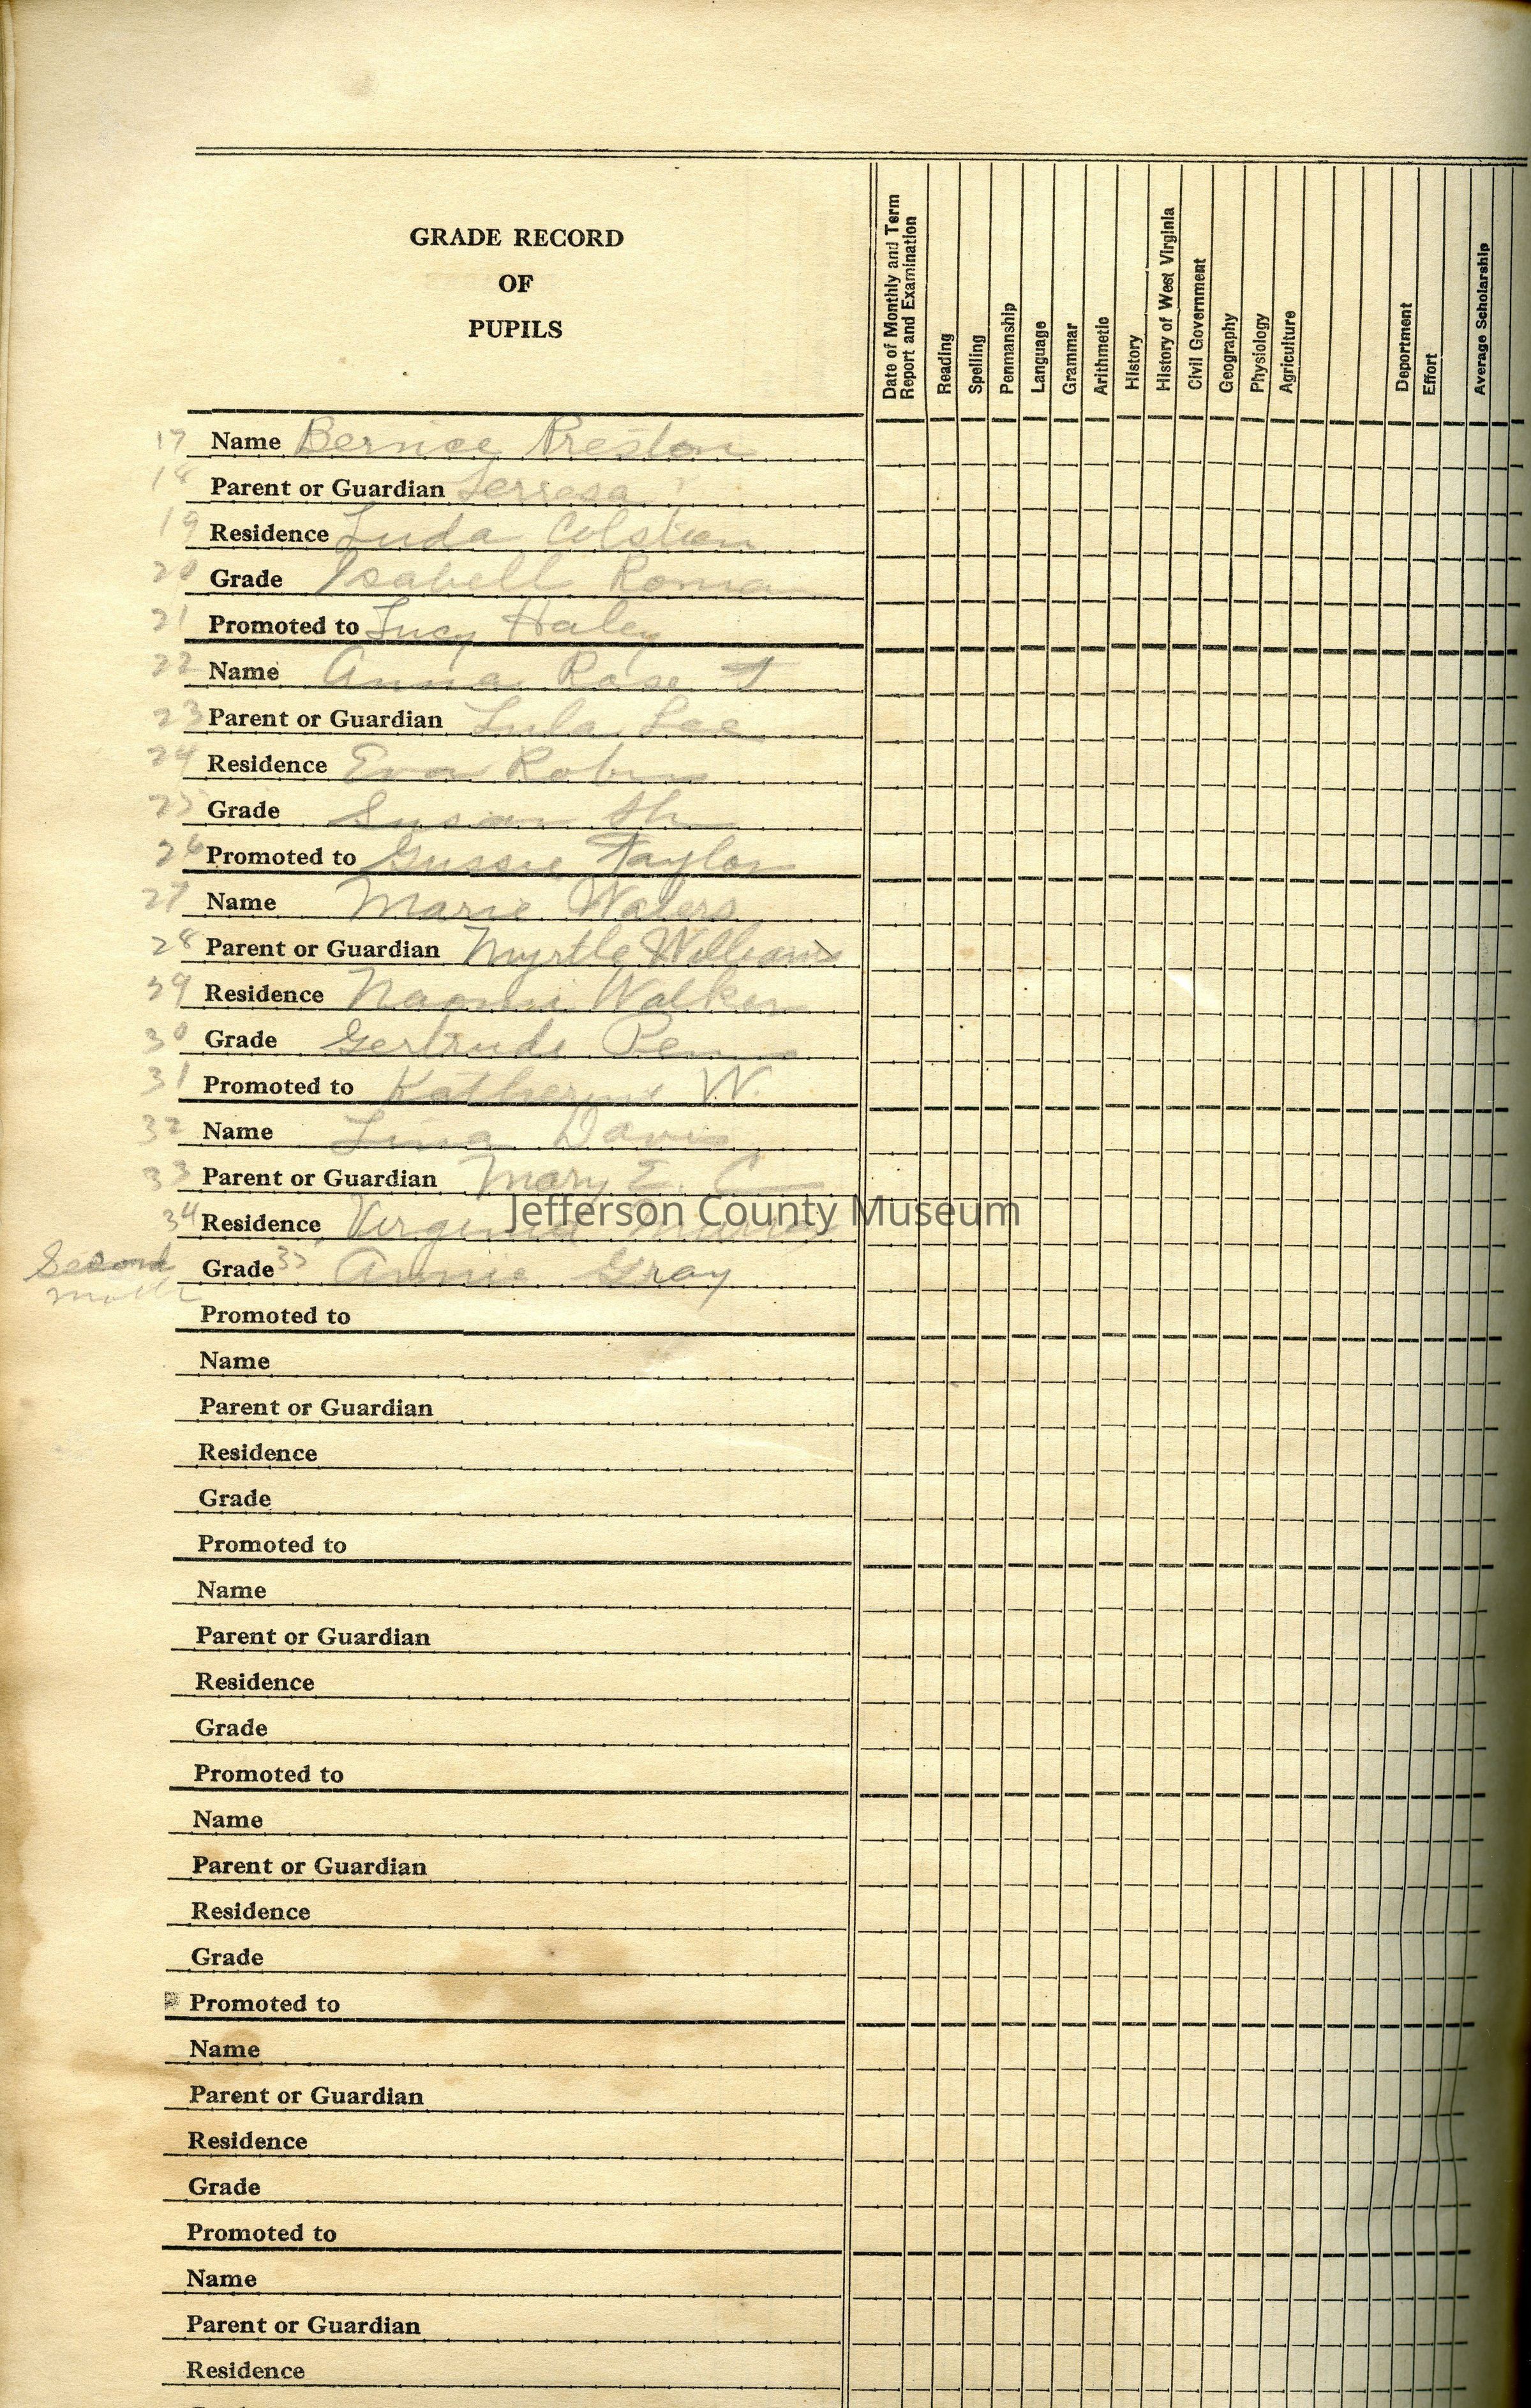 GRADE RECORD
OF
PUPILS
Date of Monthly and Term
Report and Examination
Reading
Spelling
Penmanship
Language
Grammar
Arithmetic
History
History of West Virginia
Civil Government
Geography
Physiology
Agriculture
Deportment
Effort
Average Scholarship
17 Name Bernice Preston
18 Parent or Guardian Terresa
19 Residence Luda Colston
20 Grade Isabell Roma
21 Promoted to Lucy Haley
22 Name Anna Rose T
23 Parent or Guardian Lula Lee
24 Residence Eva Robins
25 Grade Susan Sh
26 Promoted to Gussie Taylor
27 Name Marie Waters
28 Parent or Guardian Myrtle Williams
29 Residence Naomi Walker
30 Grade Gertrude Penn
31 Promoted to Katherine W.
32 Name Lina Davis
33 Parent or Guardian Mary E. C
34 Residence Virginia
Jefferson County Museum
Second Grade 35 Annie Gray
Promoted to
Name
Parent or Guardian
Residence
Grade
Promoted to
Name
Parent or Guardian
Residence
Grade
Promoted to
Name
Parent or Guardian
Residence
Grade
Promoted to
Name
Parent or Guardian
Residence
Grade
Promoted to
Name
Parent or Guardian
Residence